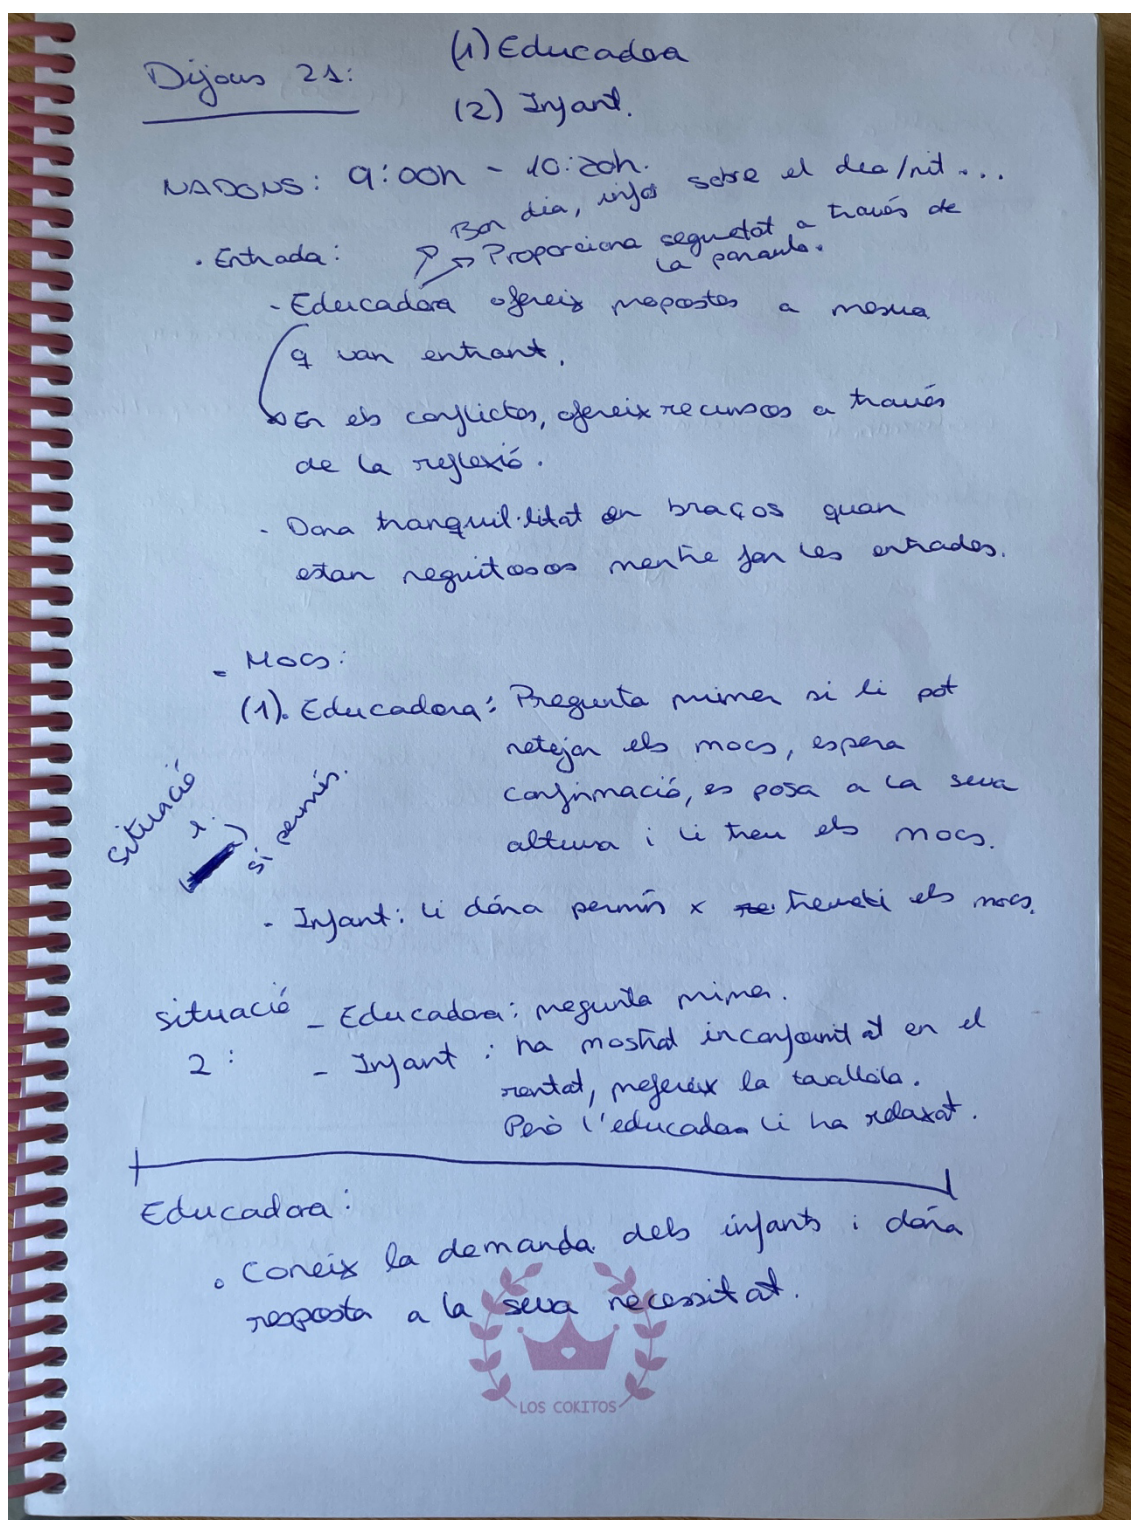 (1) Educadora
Dijous 21:
(2) Infant.
NADONS: 9:00h - 10:20h.
Bon dia, info sobre el dia/nit...
· Entrada:
Proporciona seguretat a través de
la paraula.
- Educadora ofereix propostes a mesura
q van entrant.
En els conflictes, ofereix recursos a través
de la reflexió.
- Dona tranquil·litat en braços quan
estan neguitosos mentre fan les entrades.
- Mocs:
(1). Educadora: Pregunta primer si li pot
netejar els mocs, espera
confirmació, es posa a la seva
altura i li treu els mocs.
situació
1.
si permís.
- Infant: li dóna permís x treure'li els mocs.
situació - Educadora: pregunta primer.
2: - Infant: ha mostrat inconformitat en el
rentat, prefereix la tovallola.
Però l'educadora li ha relaxat.
Educadora:
· Coneix la demanda dels infants i dóna
resposta a la seva necessitat.
LOS COKITOS